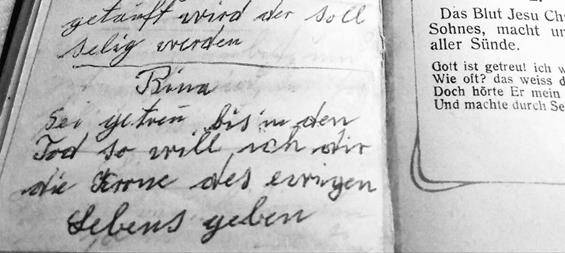 getauft wird der soll
selig werden
Bina
Sei getreu bis in den
Tod so will ich dir
die Krone des ewigen
Lebens geben
Das Blut Jesu Ch
Sohnes, macht un
aller Sünde.
Gott ist getreu! ich w
Wie oft? das weiss d
Doch hörte Er mein
Und machte durch Se